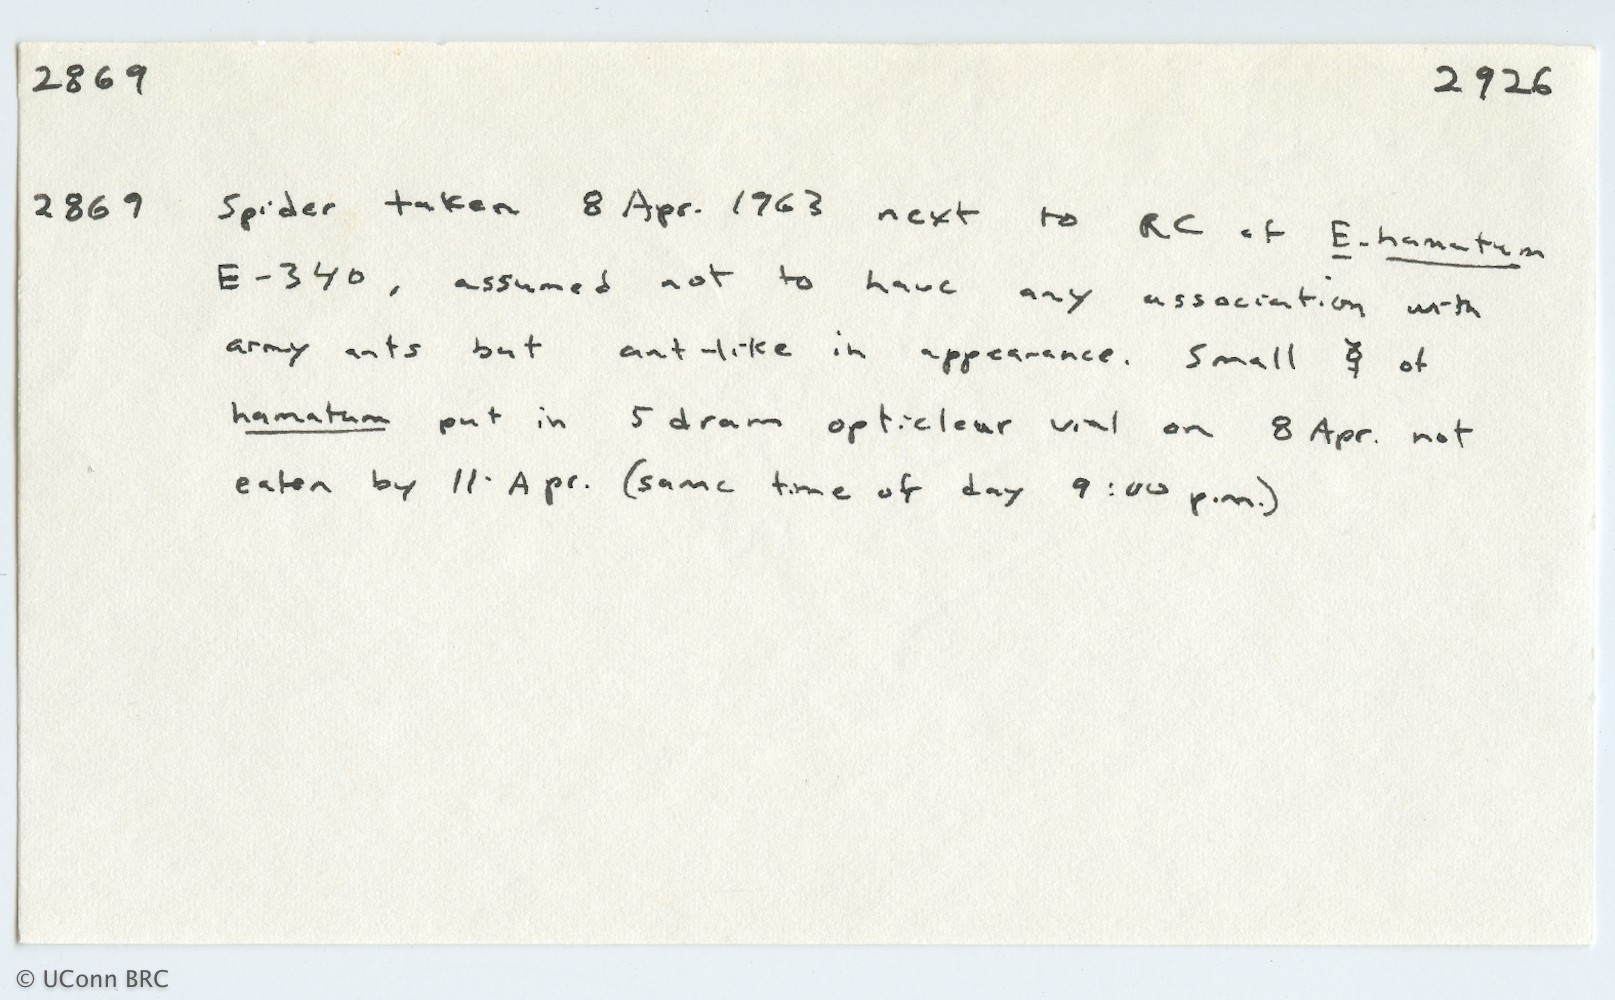 2869 2926
2869 Spider taken 8 Apr. 1963 next to RC of E. hamatum
E-340, assumed not to have any association with
army ants but ant-like in appearance. Small ☿ of
hamatum put in 5 dram opticlear vial on 8 Apr. not
eaten by 11 Apr. (same time of day 9:00 p.m.)
© UConn BRC